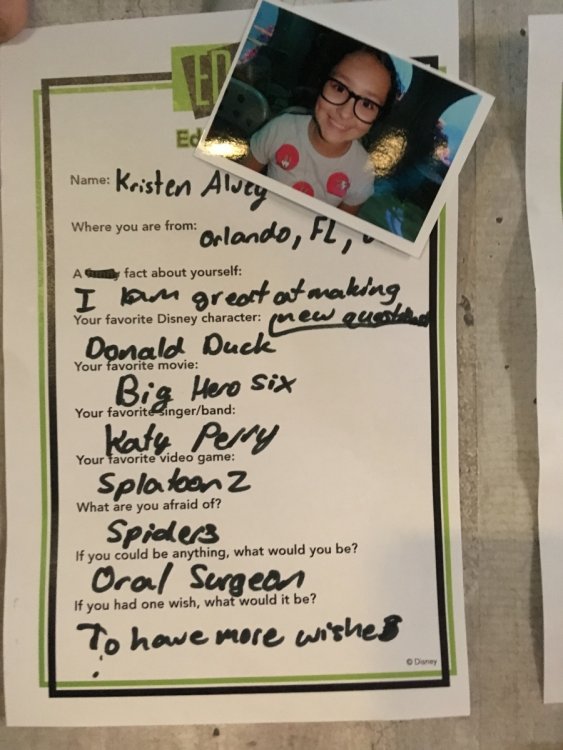 ED
Ed
Name: Kristen Alvey
Where you are from: Orlando, FL,
A fact about yourself:
I am great at making
Your favorite Disney character: new
Donald Duck
Your favorite movie:
Big Hero Six
Your favorite singer/band:
Katy Perry
Your favorite video game:
Splatoon 2
What are you afraid of?
Spiders
If you could be anything, what would you be?
Oral Surgeon
If you had one wish, what would it be?
To have more wishes
© Disney